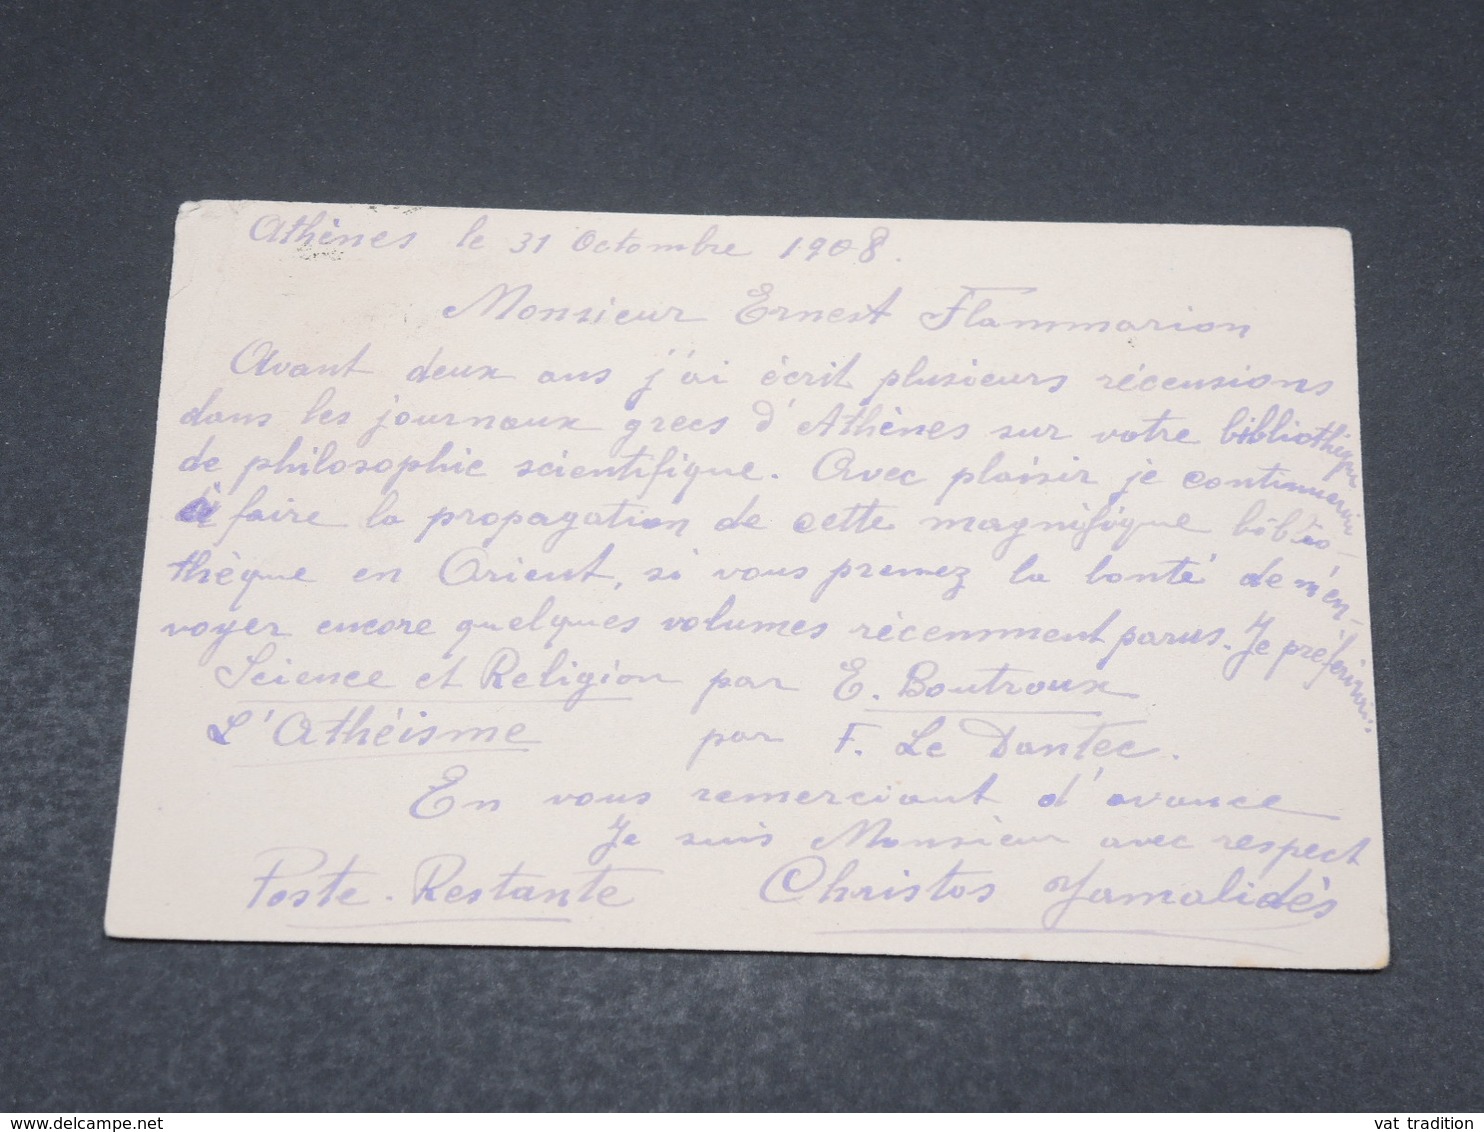 Athènes le 31 Octombre 1908.
Monsieur Ernest Flammarion
Avant deux ans j'ai écrit plusieurs récensions
dans les journaux grecs d'Athènes sur votre bibliothèque
de philosophie scientifique. Avec plaisir je continuerai
à faire la propagation de cette magnifique biblio-
thèque en Orient, si vous prenez la bonté de m'en-
voyer encore quelques volumes récemment parus. Je préférirais
Science et Religion par E. Boutroux
L'Athéisme par F. Le Dantec.
En vous remerciant d'avance
Je suis Monsieur avec respect
Poste-Restante Christos Yamalidès
delcampe.net
vat tradition